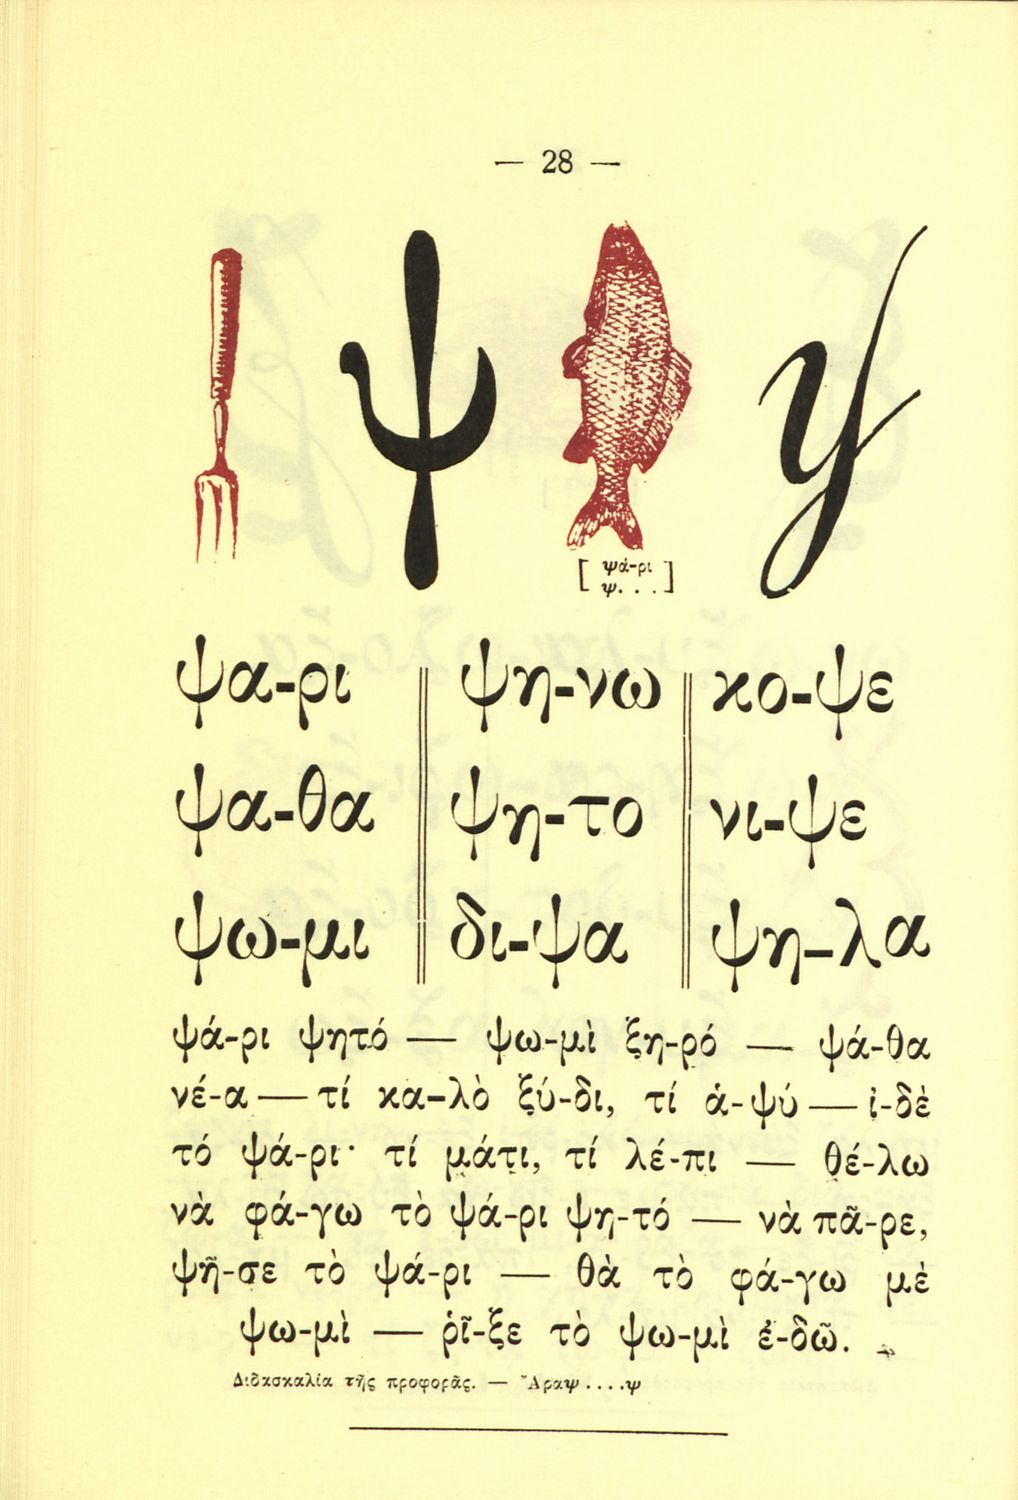 — 28 —
ψ ψ
[ ψά-ρι
ψ. . . ]
ψα-ρι ψη-νω κο-ψε
ψα-θα ψη-το νι-ψε
ψω-μι δι-ψα ψη-λα
ψά-ρι ψητό — ψω-μὶ ξη-ρό — ψά-θα
νέ-α — τί κα-λὸ ξύ-δι, τί ἁ-ψύ — ἰ-δὲ
τό ψά-ρι· τί μάτι, τί λέ-πι — θέ-λω
νὰ φά-γω τὸ ψά-ρι ψη-τό — νὰ πᾶ-ρε,
ψῆ-σε τὸ ψά-ρι — θὰ τὸ φά-γω μὲ
ψω-μὶ — ῥῖ-ξε τὸ ψω-μὶ ἐ-δῶ.
Διδασκαλία τῆς προφορᾶς. — Ἄραψ . . . . ψ